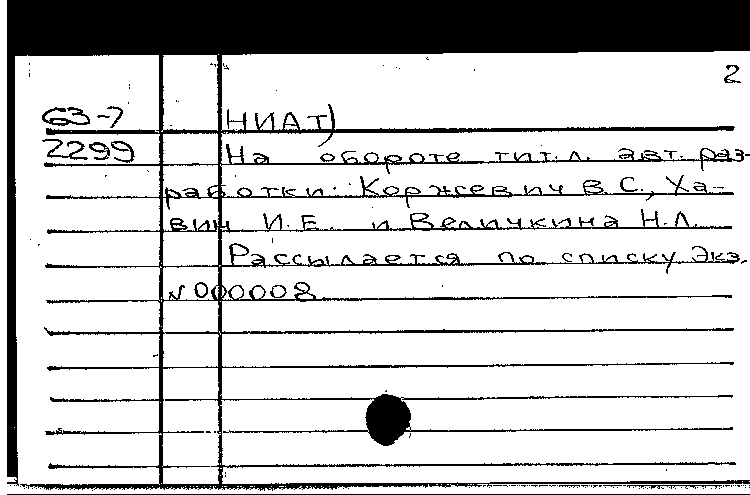 2
63-7 НИАТ)
2299 На обороте тит.л. авт. раз-
работки: Коржевич В.С., Ха-
вин И.Е. и Величкина Н.Л.
Рассылается по списку Экз.
№000008